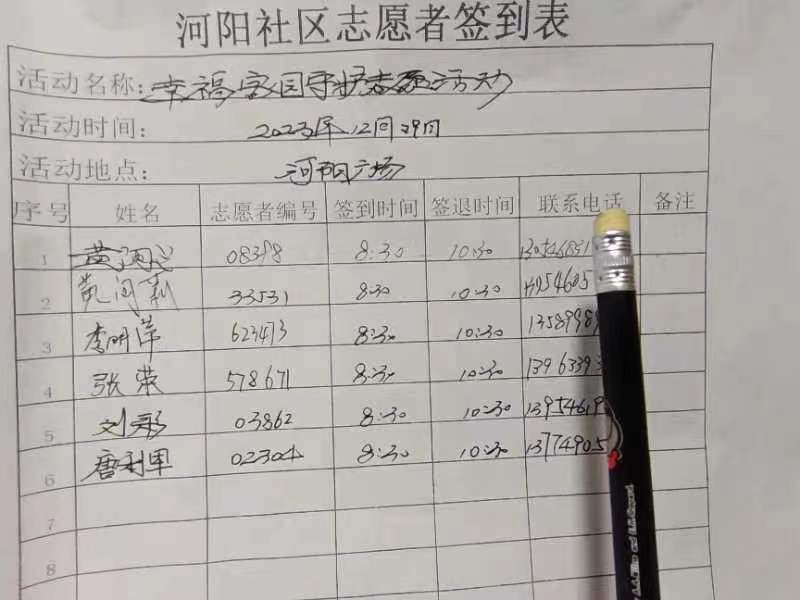 河阳社区志愿者签到表
活动名称: 幸福家园守护志愿活动
活动时间: 2023年12月29日
活动地点: 河阳广场
序号 姓名 志愿者编号 签到时间 签退时间 联系电话 备注
1 黄 08398 8:30 10:30
2 33531 8:30 10:30 13954605
3 李明萍 623413 8:30 10:30 1358998
4 张荣 578671 8:30 10:30 1396339
5 刘彩 03862 8:30 10:30 1395461
6 唐利军 02304 8:30 10:30 13774905
7
8